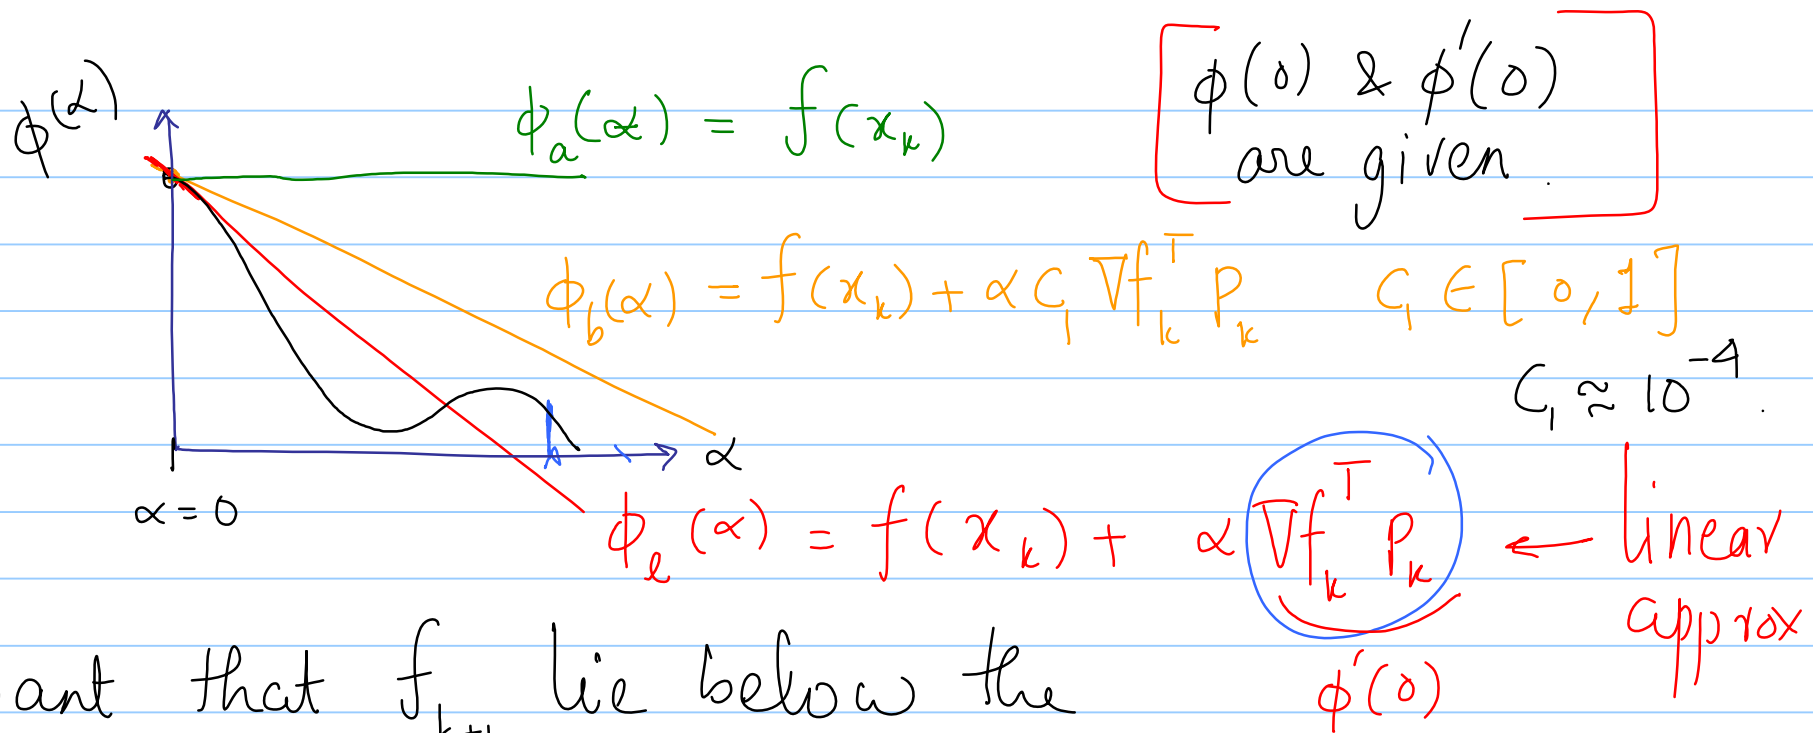 ϕ(α)
ϕₐ(α) = f(xₖ)
ϕ(0) & ϕ′(0)
are given.
ϕ_b(α) = f(xₖ) + α C₁ ∇fₖᵀ Pₖ   C₁ ∈ [0, 1]
C₁ ≈ 10⁻⁴.
α
α = 0
ϕ_ℓ(α) = f(xₖ) + α ∇fₖᵀ Pₖ ← linear
approx
ϕ′(0)
ant that fₖ₊₁ lie below the